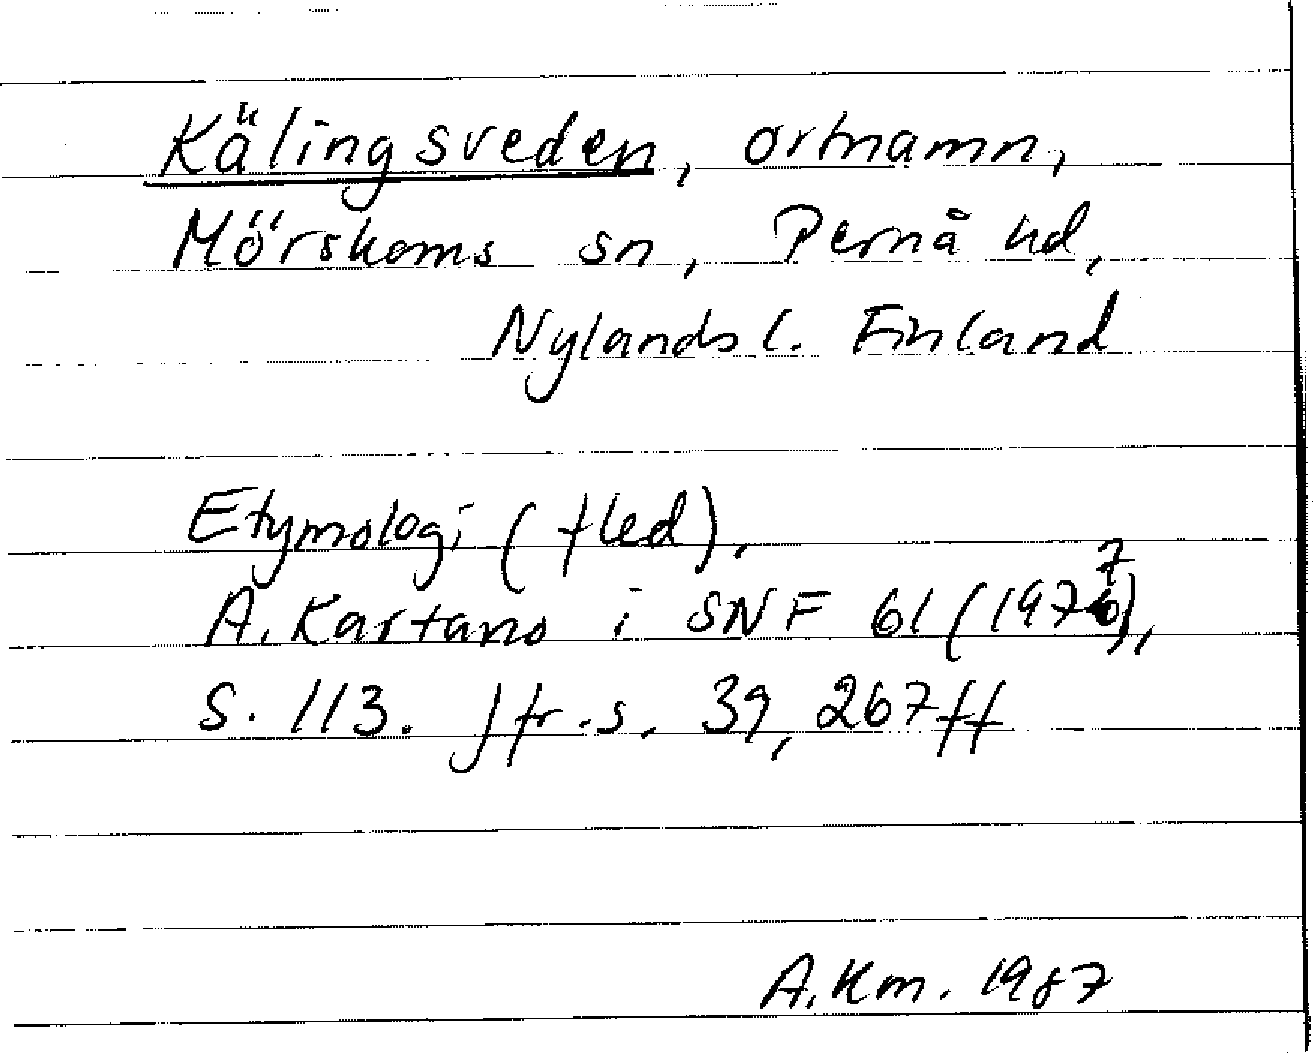 Kälingsveden, ortnamn,
Mörskoms sn, Pernå hd,
Nylands l. Finland
Etymologi (fled).
A. Kartano i SNF 61 (1977),
S. 113. Jfr. s. 39, 267 ff
A. Km. 1987